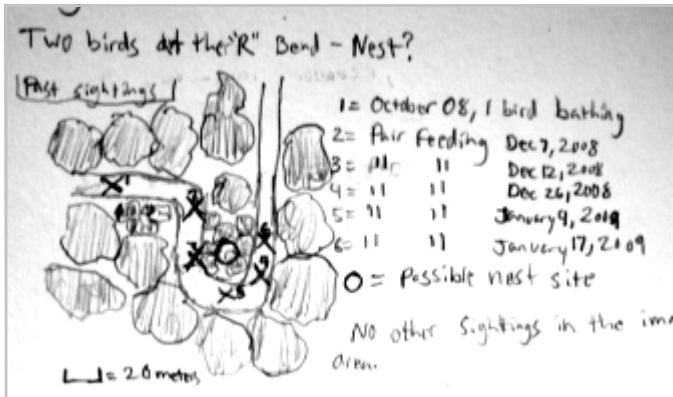 Two birds at the "R" Bend - Nest?
Past sightings
1 = October 08, 1 bird bathing
2 = Pair Feeding Dec 7, 2008
3 = " " Dec 12, 2008
4 = " " Dec 26, 2008
5 = " " January 9, 2009
6 = " " January 17, 2009
O = Possible nest site
No other sightings in the
area.
= 20 meters